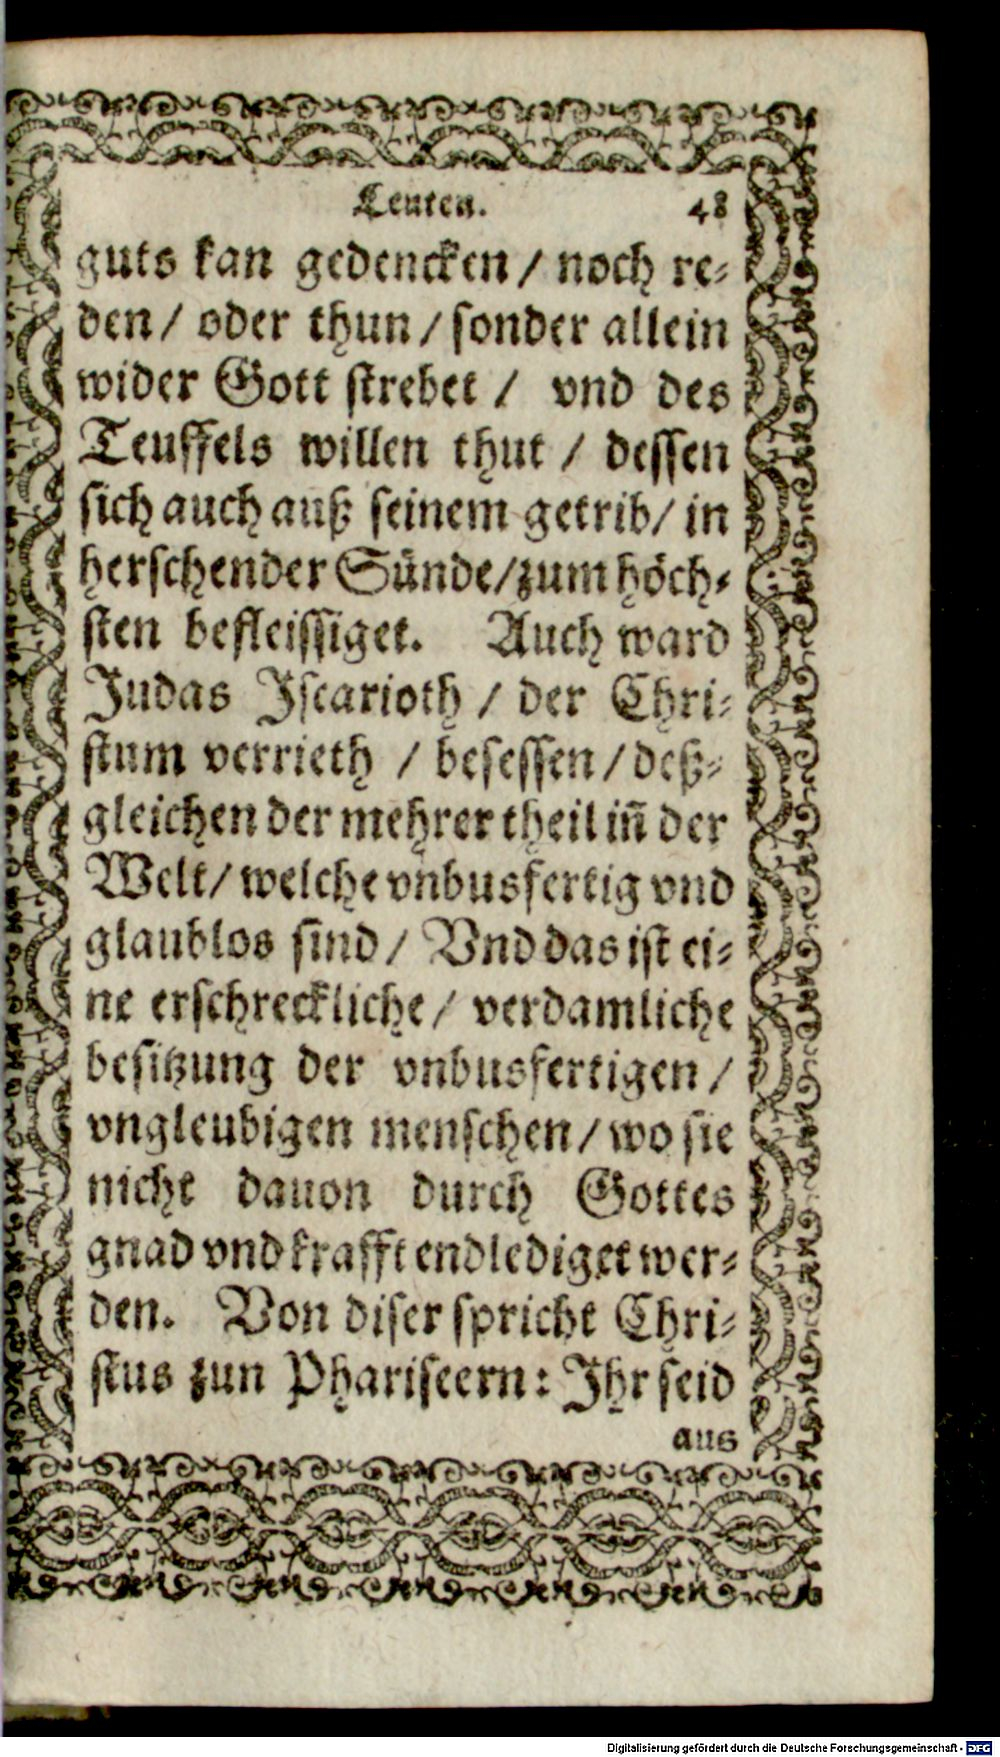 Leuten. 48
guts kan gedencken / noch re⸗
den / oder thun / sonder allein
wider Gott strebet / vnd des
Teuffels willen thut / dessen
sich auch auß seinem getrib / in
herschender Sünde / zum höch⸗
sten befleissiget. Auch ward
Judas Iscarioth / der Chri⸗
stum verrieth / besessen / deß⸗
gleichen der mehrer theil in̄ der
Welt / welche vnbusfertig vnd
glaublos sind / Vnd das ist ei⸗
ne erschreckliche / verdamliche
besitzung der vnbusfertigen /
vngleubigen menschen / wo sie
nicht dauon durch Gottes
gnad vnd krafft endlediget wer⸗
den. Von diser spricht Chri⸗
stus zun Phariseern: Ihr seid
aus
Digitalisierung gefördert durch die Deutsche Forschungsgemeinschaft - DFG